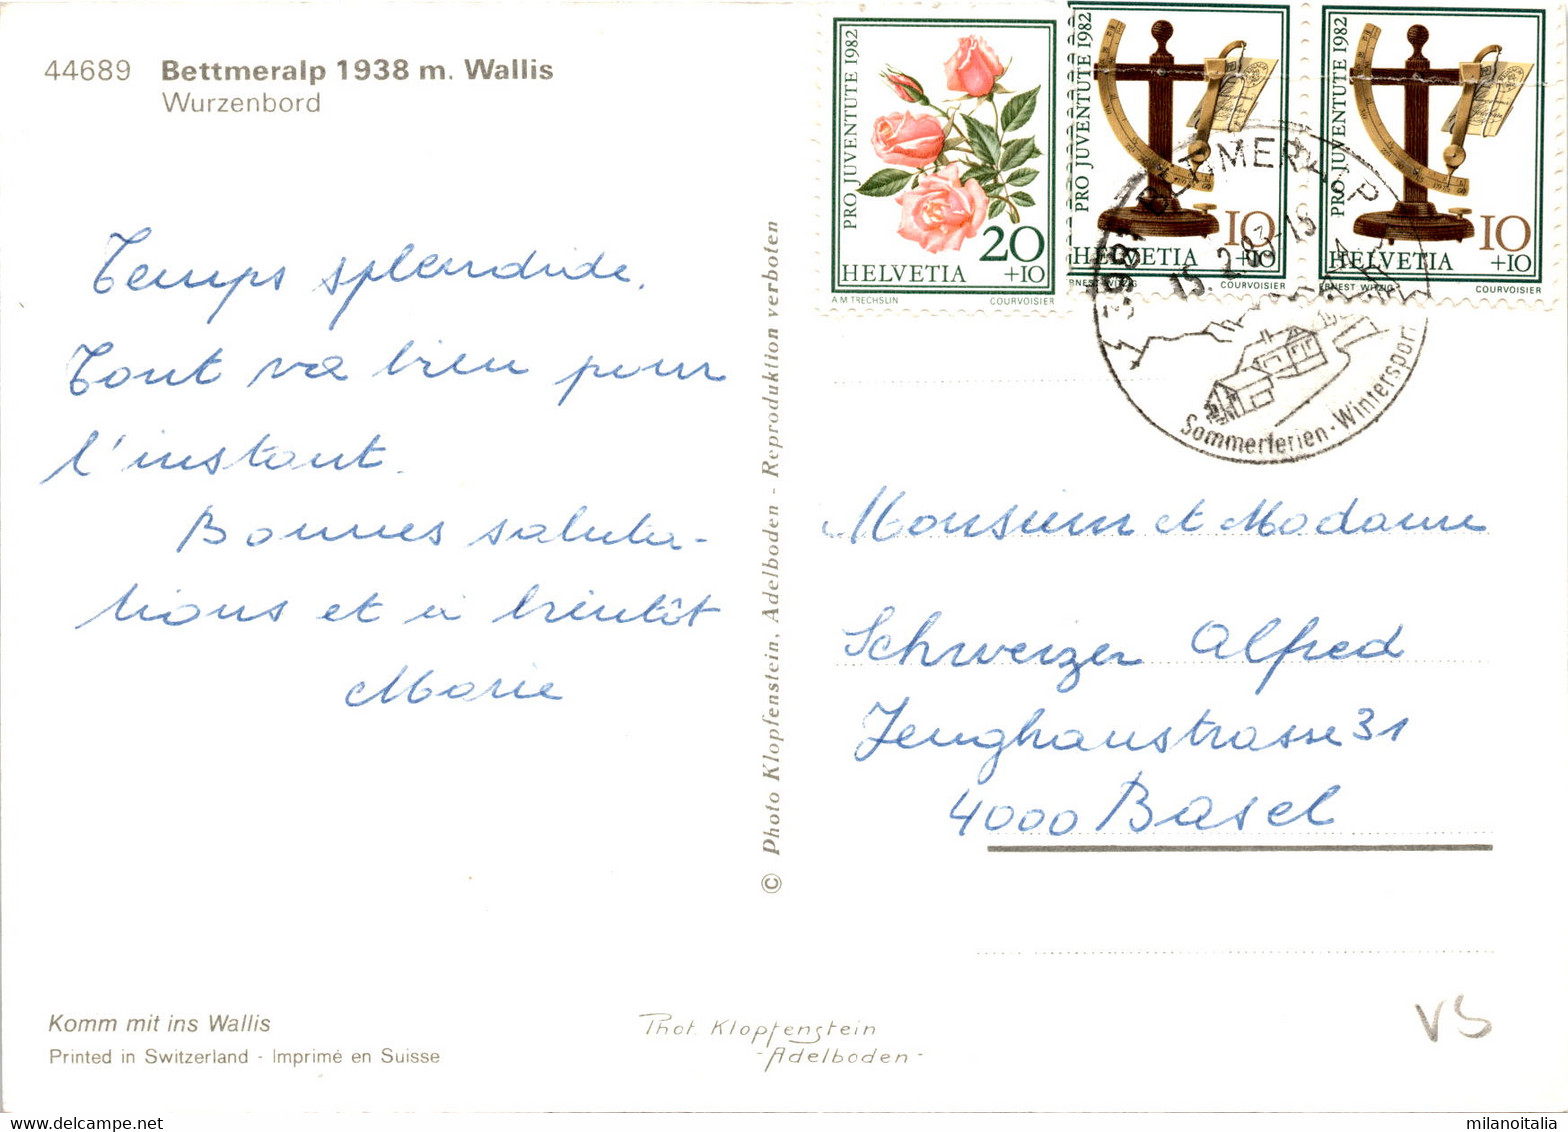 44689 Bettmeralp 1938 m. Wallis
Wurzenbord
Temps splendide.
Tout va bien pour
l'instant.
Bonnes saluta-
tions et à bientôt
Marie
Komm mit ins Wallis
Printed in Switzerland - Imprimé en Suisse
© Photo Klopfenstein, Adelboden - Reproduktion verboten
Phot. Klopfenstein
- Adelboden -
PRO JUVENTUTE 1982
20
+10
HELVETIA
A.M. TRECHSLIN COURVOISIER
PRO JUVENTUTE 1982
10
+10
HELVETIA
ERNEST WITZIG COURVOISIER
PRO JUVENTUTE 1982
10
+10
HELVETIA
ERNEST WITZIG COURVOISIER
BETTMERALP
15. 2. 83 - 16
Sommerferien - Wintersport
Monsieur et Madame
Schweizer Alfred
Zeughausstrasse 31
4000 Basel
VS
milanoitalia